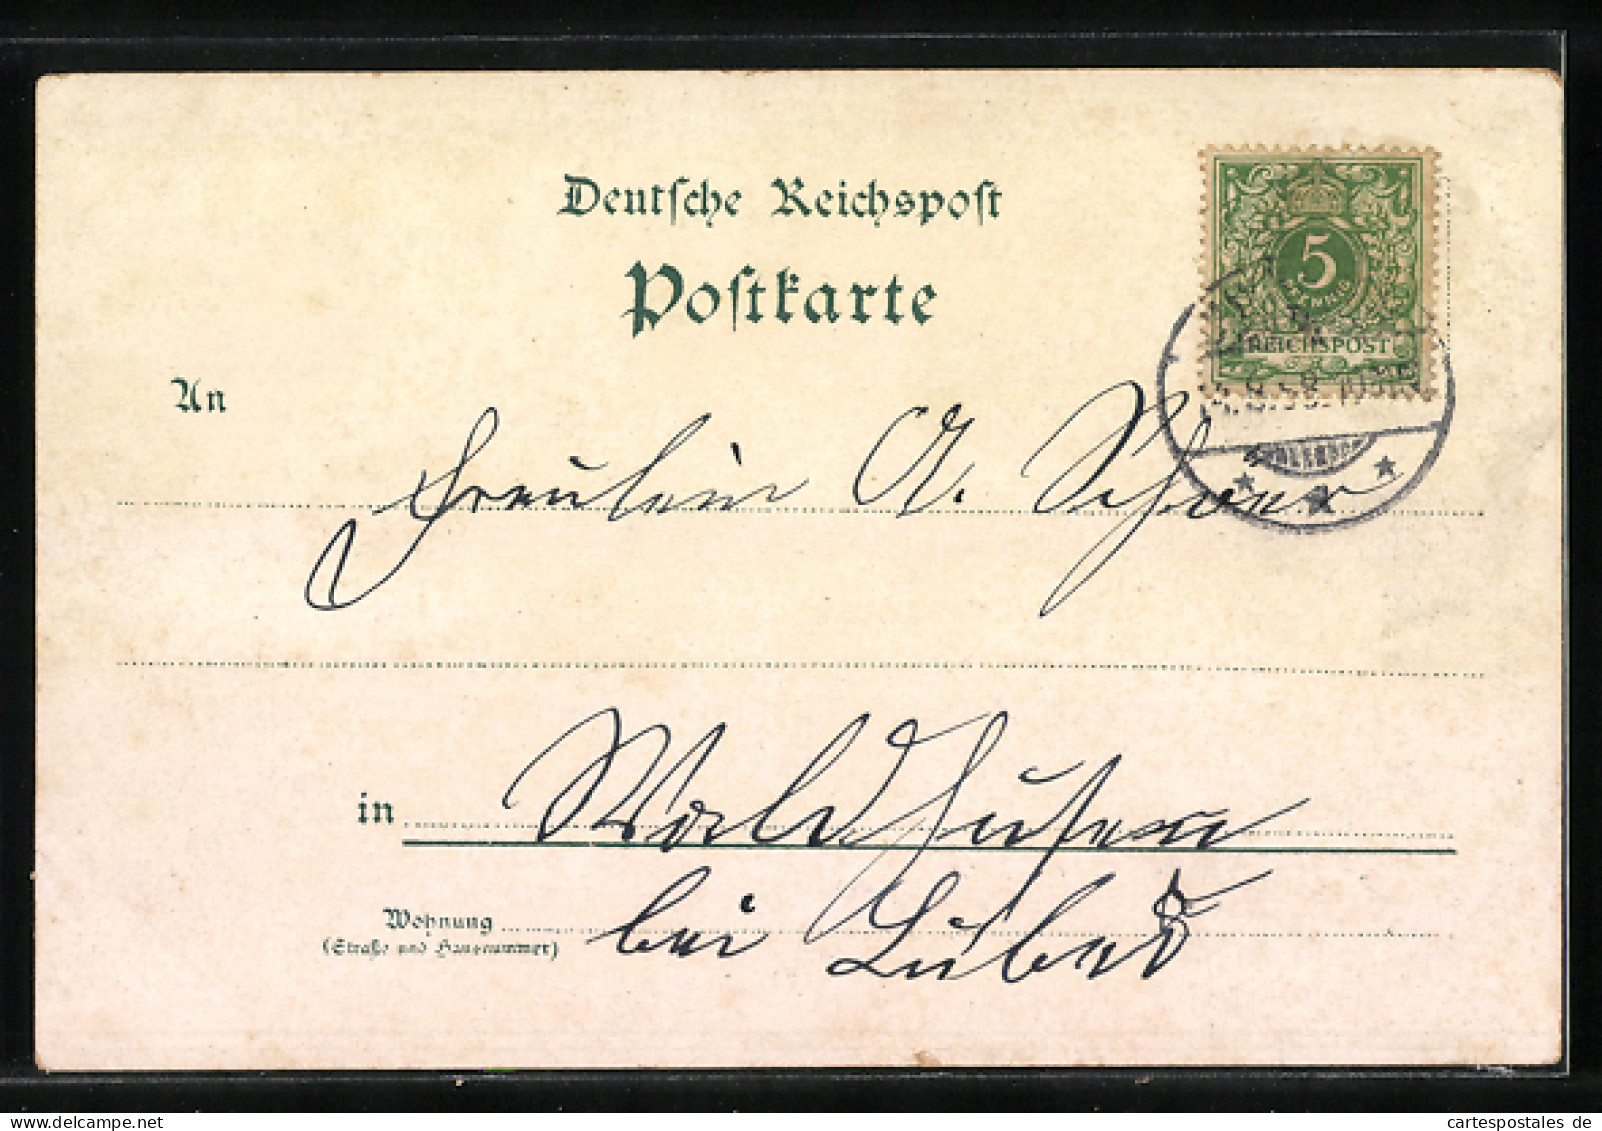 Deutsche Reichspost
Postkarte
5
PFENNIG
REICHSPOST
An
Fräulein A.
in Waldhusen
Wohnung bei Lübeck
(Straße und Hausnummer)
cartespostales de